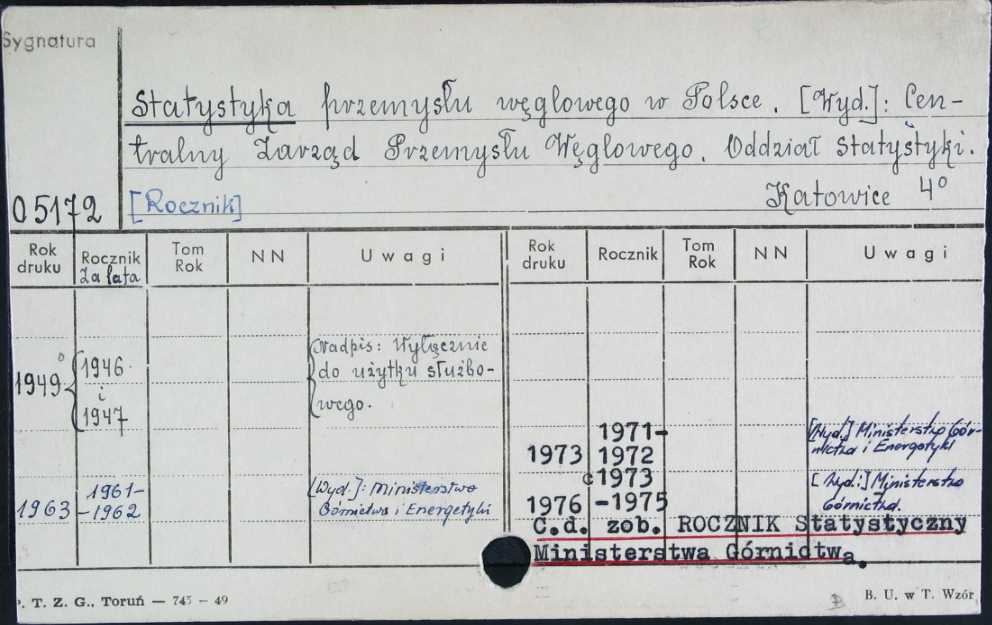 Sygnatura
Statystyka przemysłu węglowego w Polsce. [Wyd.]: Cen-
tralny Zarząd Przemysłu Węglowego. Oddział Statystyki.
Katowice 4°
05172
[Rocznik]
Rok druku
Rocznik
Za lata
Tom Rok
NN
Uwagi
Rok druku
Rocznik
Tom Rok
NN
Uwagi
1949
1946
i
1947
Nadpis: Wyłącznie
do użytku służbo-
wego.
1963
1961-
-1962
[Wyd.]: Ministerstwo
Górnictwa i Energetyki
1973
1971-
1972
[Wyd.] Ministerstwo Gór-
nictwa i Energetyki
1976
1973
-1975
[Wyd.:] Ministerstwo
Górnictwa.
C.d. zob. ROCZNIK Statystyczny
Ministerstwa Górnictwa.
P. T. Z. G., Toruń — 745 - 49
B. U. w T. Wzór